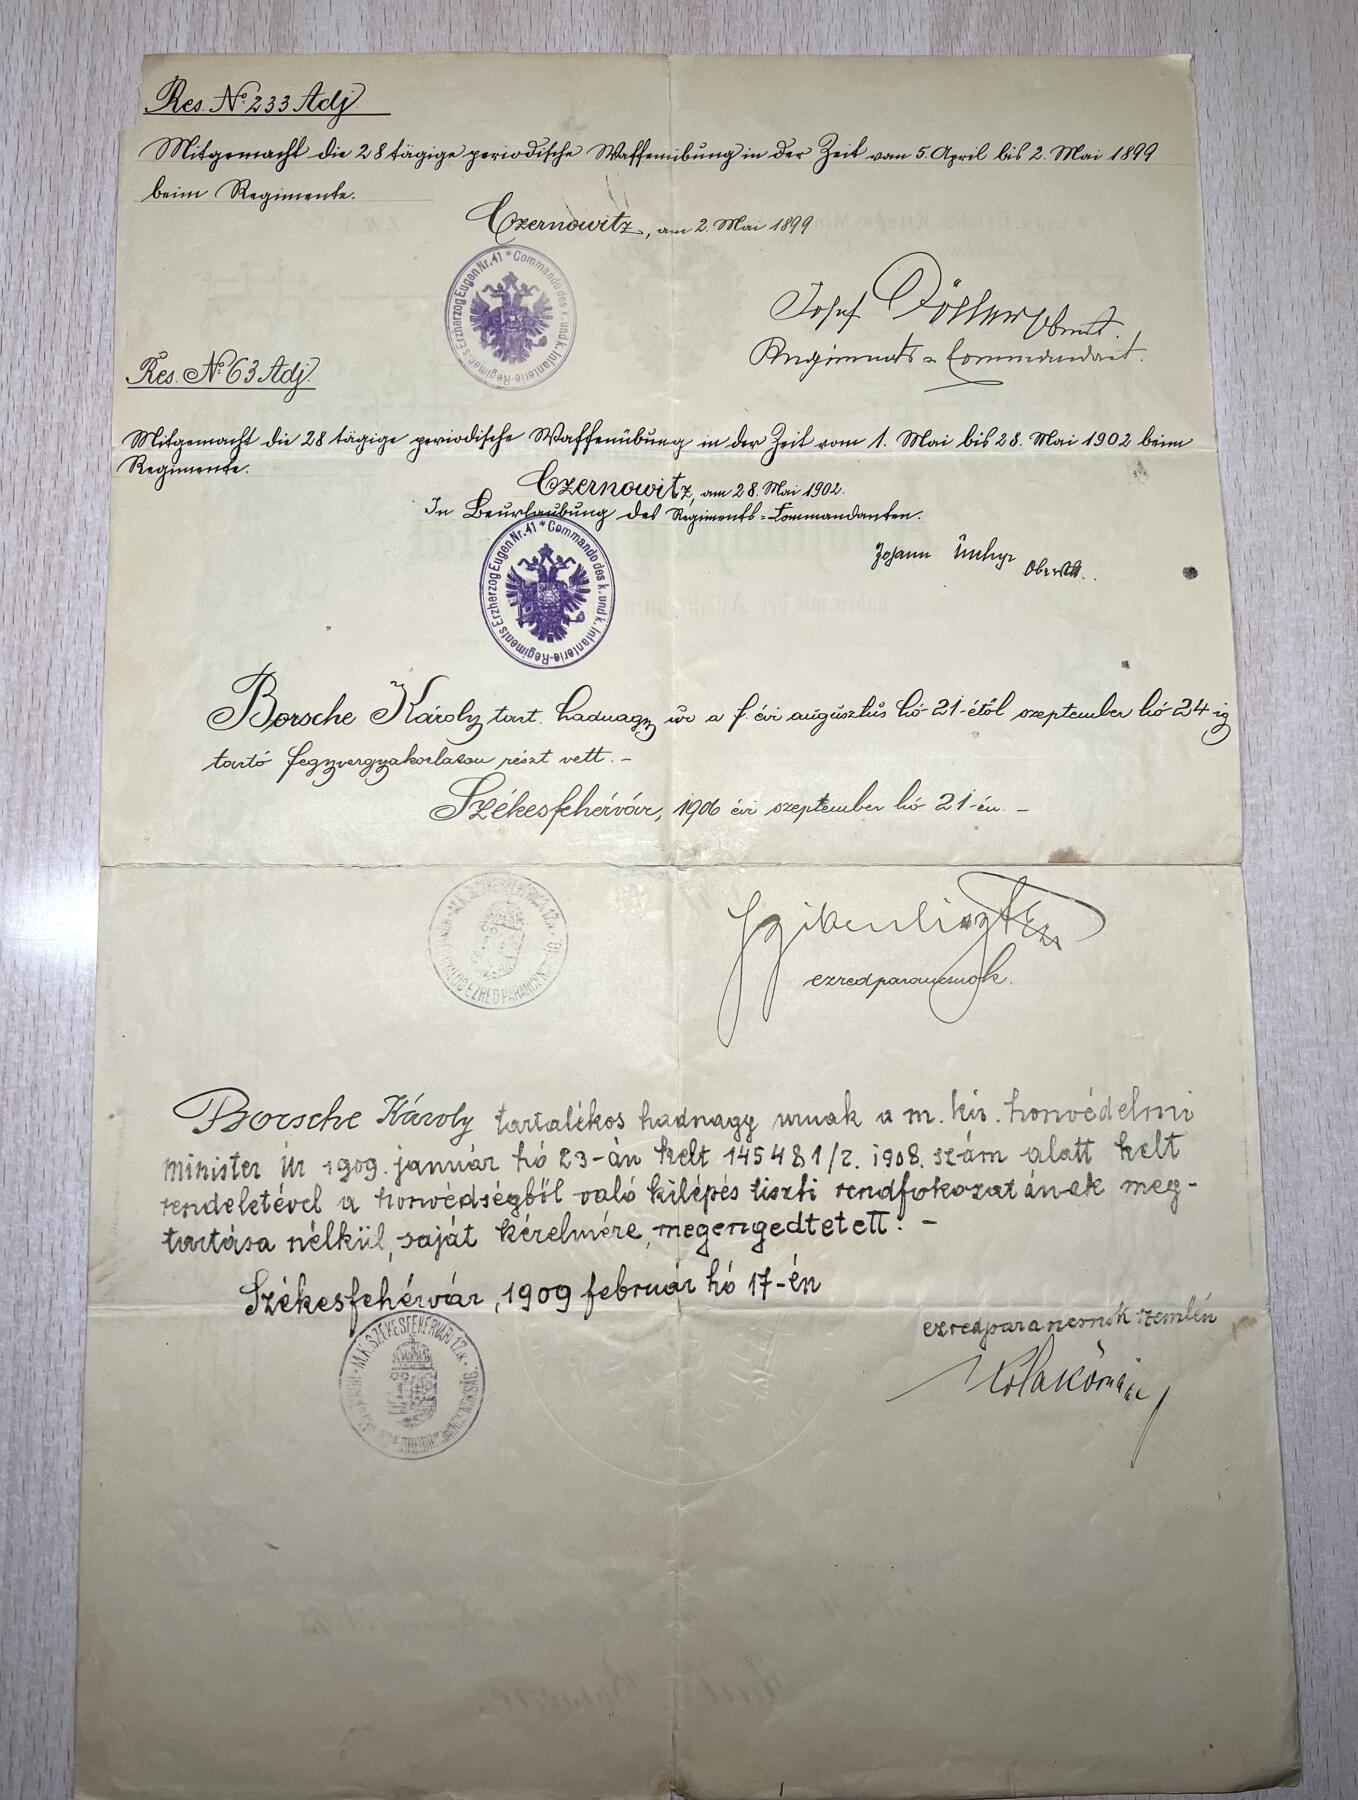 Res. No 233 Adj
Mitgemacht die 28 tägige periodische Waffenübung in der Zeit vom 5. April bis 2. Mai 1899
beim Regimente.
Czernowitz, am 2. Mai 1899
Commando des k. und k. Infanterie-Regiments Erzherzog Eugen Nr. 41 *
Josef
Regiments-Commandant.
Res. No 63 Adj.
Mitgemacht die 28 tägige periodische Waffenübung in der Zeit vom 1. Mai bis 28. Mai 1902 beim
Regimente.
Czernowitz, am 28. Mai 1902.
In Beurlaubung des Regiments-Commandanten.
Johann
Commando des k. und k. Infanterie-Regiments Erzherzog Eugen Nr. 41 *
Borsche Károly tart. hadnagy úr a f. évi augusztus hó 21-étől szeptember hó 24-ig
tartó fegyvergyakorlaton részt vett. –
Székesfehérvár, 1906 évi szeptember hó 21-én. –
ezredparancsnok.
Borsche Károly tartalékos hadnagy urnak a m. kir. honvédelmi
minister úr 1909. január hó 23-án kelt 145481/2. 1908. szám alatt kelt
rendeletével a honvédségből való kilépés tiszti rendfokozatának meg-
tartása nélkül, saját kérelmére, megengedtetett. –
Székesfehérvár, 1909 február hó 17-én
ezredparancsnok szemlén
M. K. SZÉKESFEHÉRVÁRI 12. K.